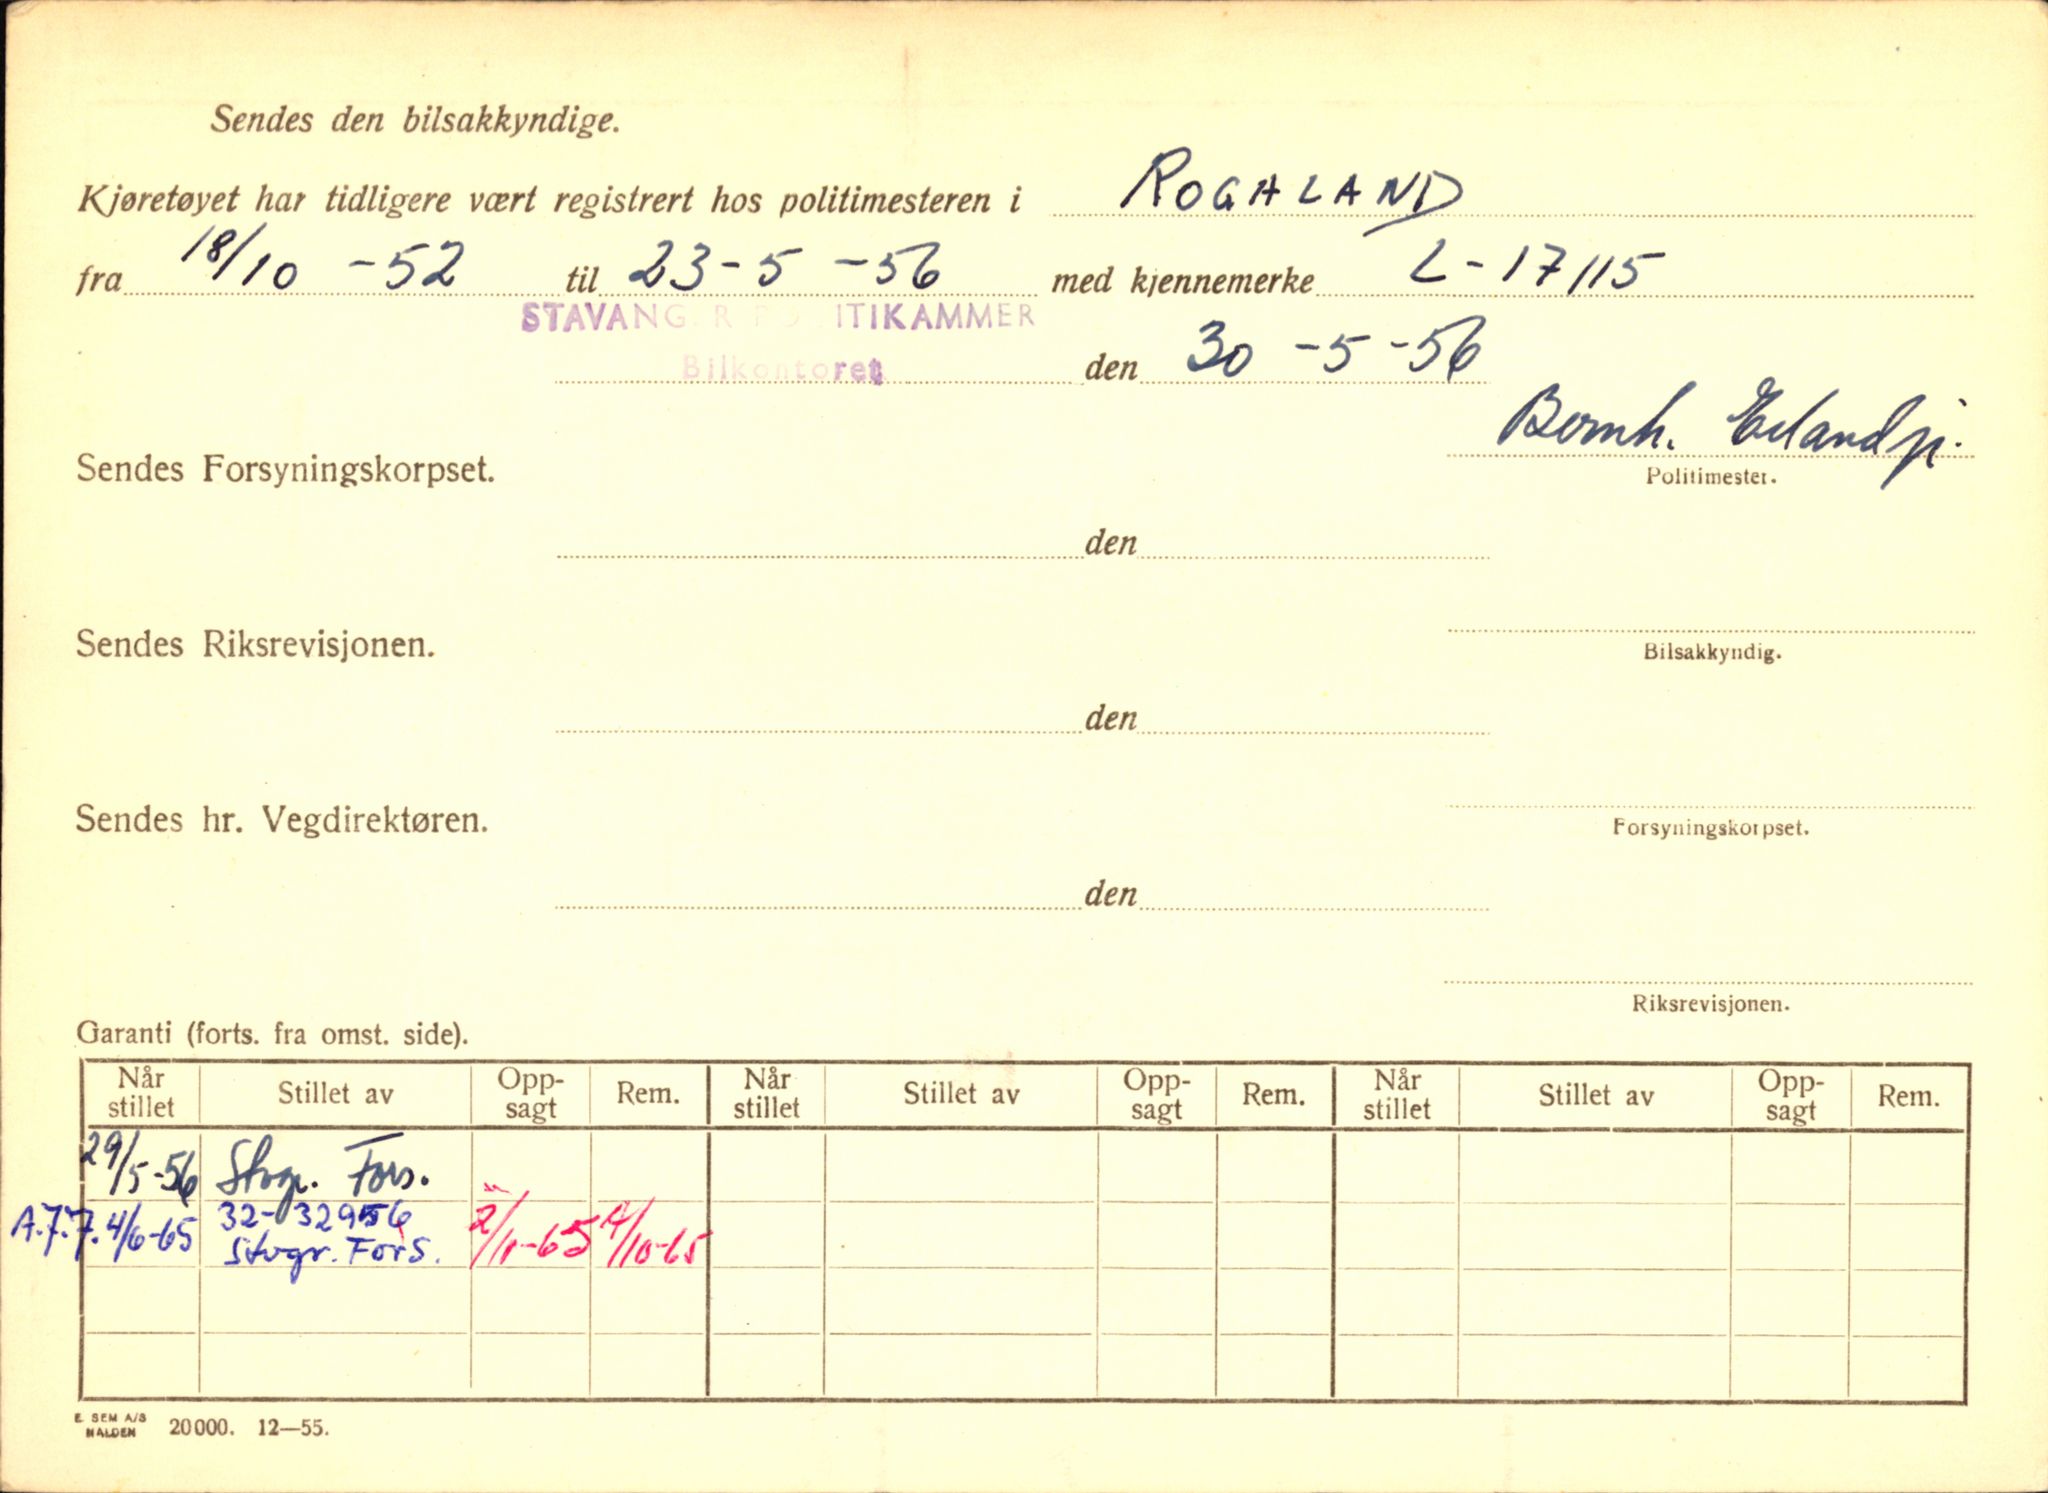 Sendes den bilsakkyndige.
Kjøretøyet har tidligere vært registrert hos politimesteren i ROGALAND
fra 18/10 -52 til 23-5-56 med kjennemerke L-17115
STAVANGER POLITIKAMMER
Bilkontoret den 30-5-56
Bernh. Erland
Sendes Forsyningskorpset. Politimester.
den
Sendes Riksrevisjonen. Bilsakkyndig.
den
Sendes hr. Vegdirektøren. Forsyningskorpset.
den
Riksrevisjonen.
Garanti (forts. fra omst. side).
Når stillet Stillet av Opp-sagt Rem. Når stillet Stillet av Opp-sagt Rem. Når stillet Stillet av Opp-sagt Rem.
29/5-56 Stvgr. Fors.
A.7.7. 4/6-65 32-32956 2/11-65 4/10-65
Stvgr. Fors.
E. SEM A/S
HALDEN 20000. 12—55.